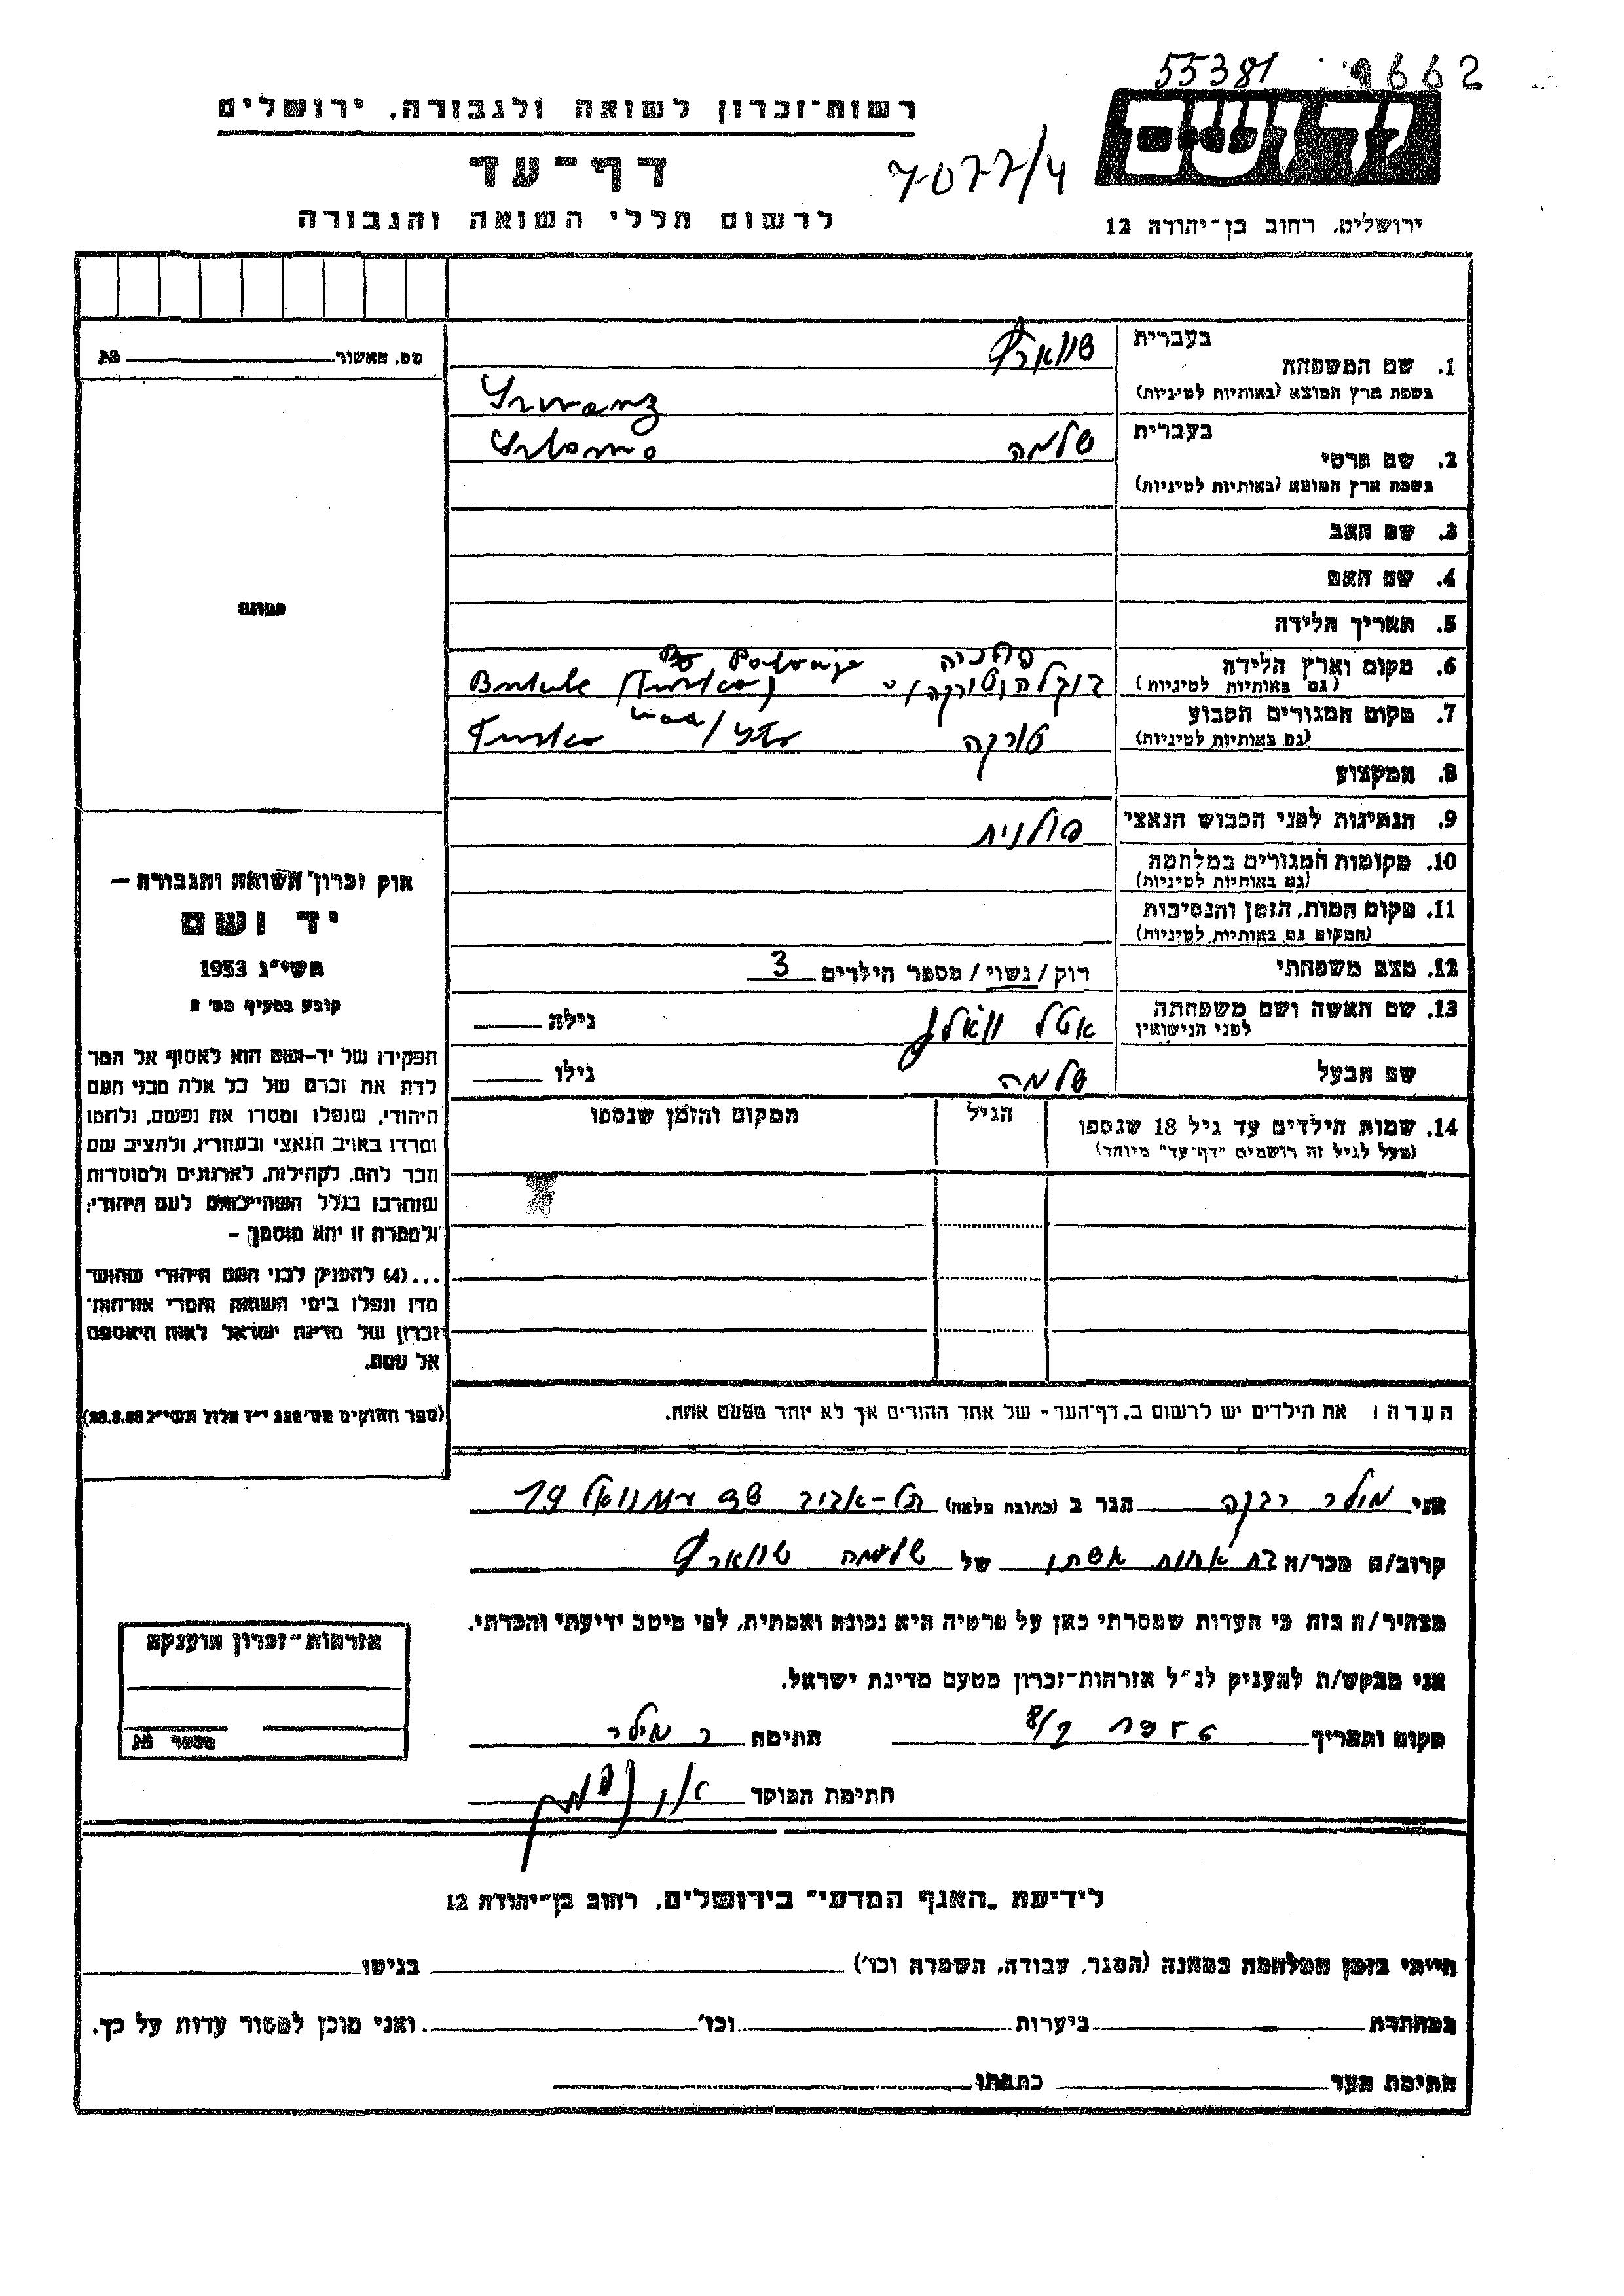 55381 9662
רשות-זכרון לשואה ולגבורה, ירושלים
דף-עד
7077/4
לרשום חללי השואה והגבורה
ירושלים, רחוב בן-יהודה 12
מס. האשור
בעברית
שווארץ
1. שם המשפחה
בשפת ארץ המוצא (באותיות לטיניות)
בעברית
שלמה
2. שם פרטי
בשפת ארץ המוצא (באותיות לטיניות)
3. שם האב
4. שם האם
5. תאריך הלידה
תמונה
6. מקום וארץ הלידה
(גם באותיות לטיניות)
7. מקום המגורים הקבוע
טורקה Turka
(גם באותיות לטיניות)
8. המקצוע
9. הנתינות לפני הכבוש הנאצי
פולנית
10. מקומות המגורים במלחמה
(גם באותיות לטיניות)
11. מקום המות, הזמן והנסיבות
(המקום גם באותיות לטיניות)
12. מצב משפחתי רוק / נשוי / מספר הילדים 3
13. שם האשה ושם משפחתה
לפני הנישואין
אטל גילה
שם הבעל שלמה גילו
14. שמות הילדים עד גיל 18 שנספו הגיל המקום והזמן שנספו
(מעל לגיל זה רושמים "דף-עד" מיוחד)
חוק זכרון השואה והגבורה –
יד ושם
תשי"ג 1953
קובע בסעיף מס' 2
תפקידו של יד-ושם הוא לאסוף אל המו
לדת את זכרם של כל אלה מבני העם
היהודי, שנפלו ומסרו את נפשם, נלחמו
ומרדו באויב הנאצי ובעוזריו, ולהציב שם
וזכר להם, לקהילות, לארגונים ולמוסדות
שנחרבו בגלל השתייכותם לעם היהודי;
ולמטרה זו יהא מוסמך –
...(4) להעניק לבני העם היהודי שהוש
מדו ונפלו בימי השואה והמרי אזרחות-
זכרון של מדינת ישראל לאות היאספם
אל עמם.
(ספר החוקים מס' 132 י"ז אלול תשי"ג 28.8.53)
הערה: את הילדים יש לרשום ב"דף-העד" של אחד ההורים אך לא יותר מפעם אחת.
אני מילר רבקה הגר ב (כתובת מלאה) תל-אביב 19
קרוב/ה מכר/ה בת אחות אשתו של שלמה שווארץ
מצהיר/ה בזה כי העדות שמסרתי כאן על פרטיה היא נכונה ואמתית, לפי מיטב ידיעתי והכרתי.
אני מבקש/ת להעניק לנ"ל אזרחות-זכרון מטעם מדינת ישראל.
מקום ותאריך חתימה ר מילר
חתימת הפוקד
אזרחות-זכרון הוענקה
לידיעת "האגף המדעי" בירושלים, רחוב בן-יהודה 12
הייתי בזמן המלחמה במחנה (הסגר, עבודה, השמדה וכו') בגיטו
במחתרת ביערות וכו' ואני מוכן למסור עדות על כך.
חתימת העד כתבתו